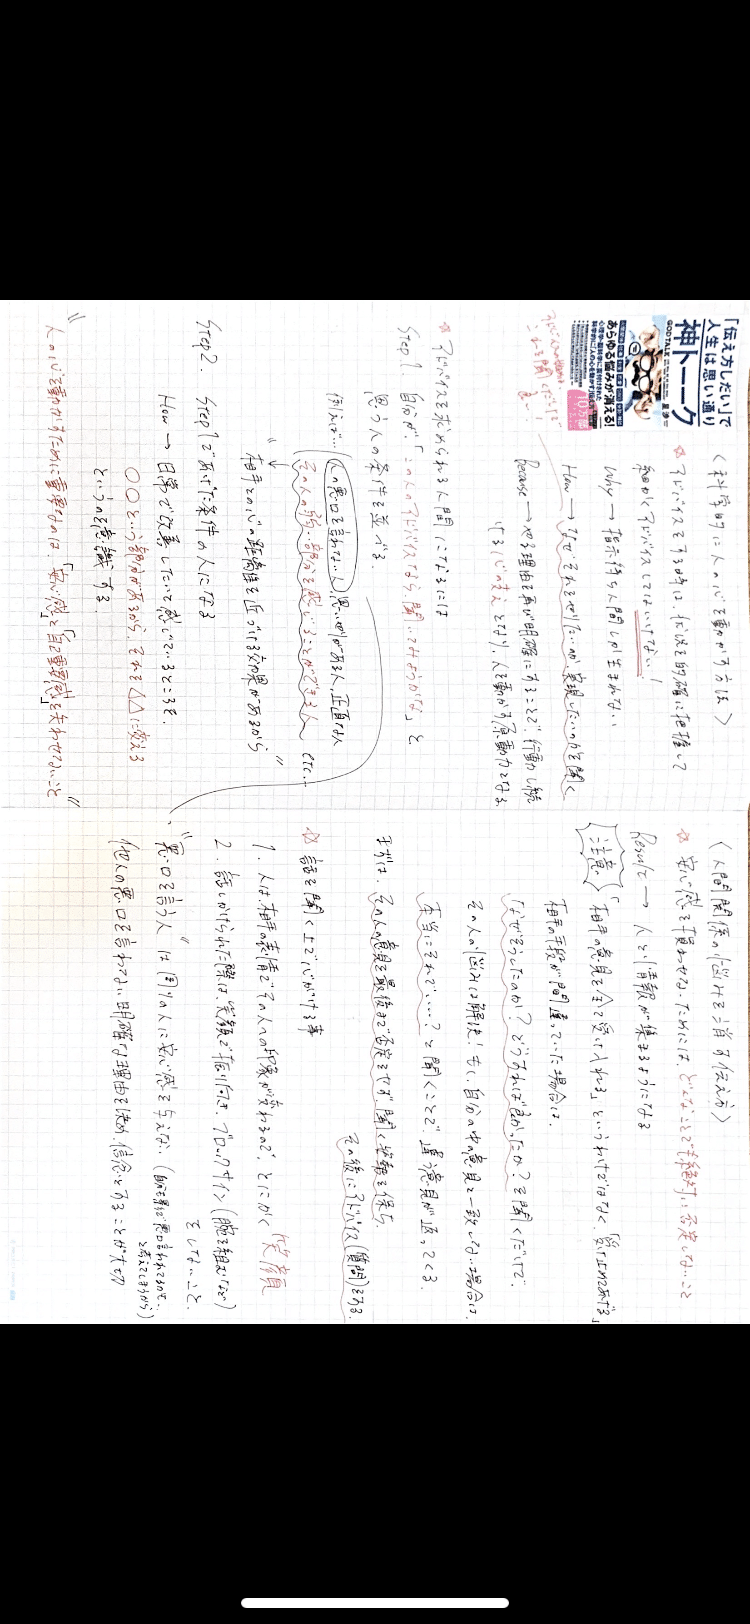 「伝え方しだい」で
人生は思い通り
神トーーク
GOD TALK
星渉
あらゆる悩みが消える!
10万部
〈科学的に人の心を動かす方法〉
☆ アドバイスをする時は、状況を的確に把握して
細かくアドバイスしてはいけない!
Why → 指示待ち人間しか生まれない
How → なぜそれをせりたいか 実現したいのかを聞く
Because → やる理由を再び明確にすることで、行動し続
ける(心の支え)となり、人を動かす原動力となる
☆ アドバイスを求められる人間になるには
Step1. 自分が、「この人のアドバイスなら、聞いてみようかな」と
思う人の条件を並べる。
例えば… 人の悪口を言わない人、思いやりがある人、正直な人
その人の弱い部分を感じることができる人 etc…
相手との心の距離を近づける効果があるから
Step2. Step1であげた条件の人になる
How → 日常で改善したいって感じているところを、
〇〇という部分があるから、それを△に変える
というのを意識する。
"人の心を動かすために重要なのは、「安心感」と「自己重要感」を失わせないこと"
〈人間関係の悩みを消す伝え方〉
☆ 安心感を損わせないためには、どんなことでも「絶対」に否定しないこと
Result → 人と情報が集まるようになる
注意 「相手の意見を全て受け入れる」というわけではなく「受け止めてあげる」
相手の手段が間違っていた場合は、
「なぜそうしたのか? どうすれば良かったか?」を聞くだけで、
その人の悩みは解決! もし、自分の中の意見と一致しない場合は、
「本当にそれでいい?」と聞くことで違う意見が返ってくる。
まずは、その人の意見を最後まで否定をせず、聞く姿勢を保ち、
その後にアドバイス(質問)をする。
☆ 話を聞く上で心がける事
1. 人は相手の表情でその人への印象が変わるので、とにかく 笑顔
2. 話しかけられた際は、笑顔で振り向き、ブロックサイン(腕を組むなど)
をしないこと。
"悪口を言う人" は周りの人に安心感を与えない (自分も裏で悪口言われてるかも…
と考えてしまうから)
他人の悪口を言わない明確な理由を決め、信念とすることが大切